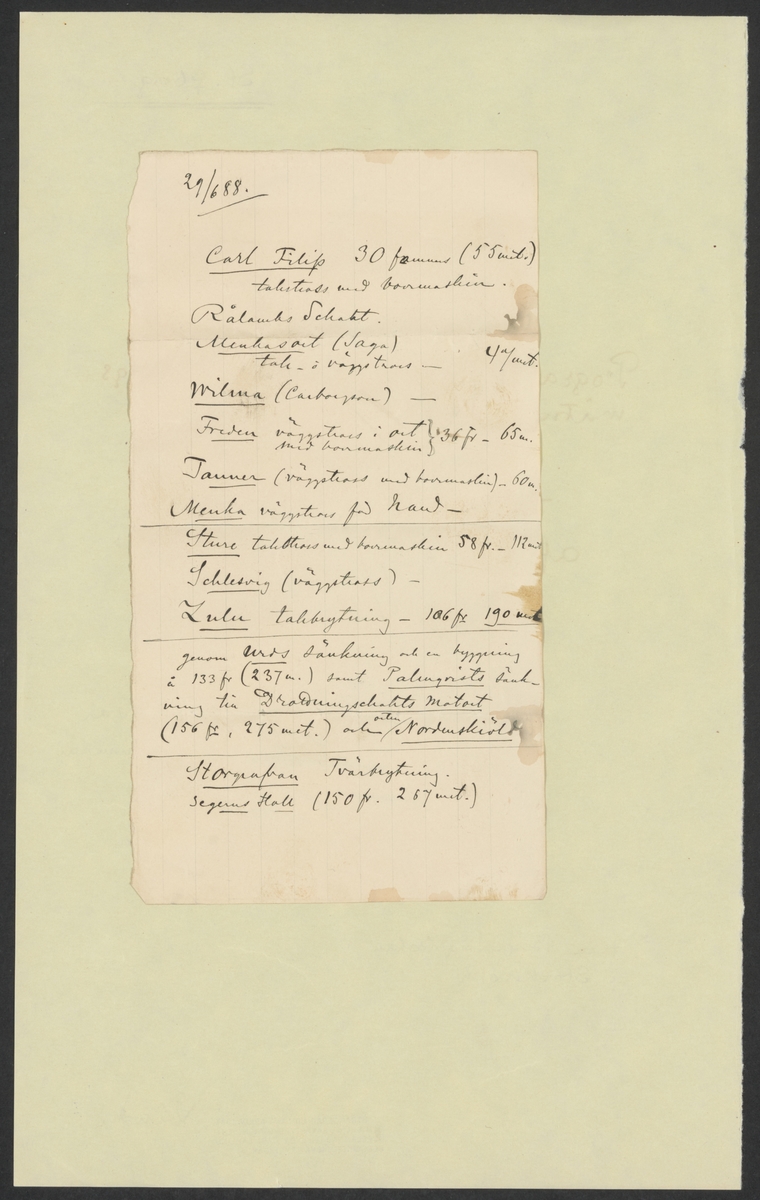 29/6 88.
Carl Filip 30 famnns (55 met.)
takstross med borrmaskin.
Rålambs Schakt.
Menkasort (Saga)
tak- o väggstross —
met.
Wilma —
Freden väggstross i ort } 36 fr - 65 m.
med borrmaskin
Tanner (väggstross med borrmaskin) - 60 m.
Menka väggstross för hand —
Sture takstross med borrmaskin 58 fr. - 112 met
Schlesvig (väggstross) —
Zulu takbrytning - 106 fr 190 met
genom Urds sänkning och en byggning
å 133 fr (237 m.) samt Palmqvists sänk-
ning till Drottningschakts motort
(156 fr, 275 met.) och orten Nordenskiöld
Storgrufvan Tvärbrytning.
Segerns Hall (150 fr. 267 met.)